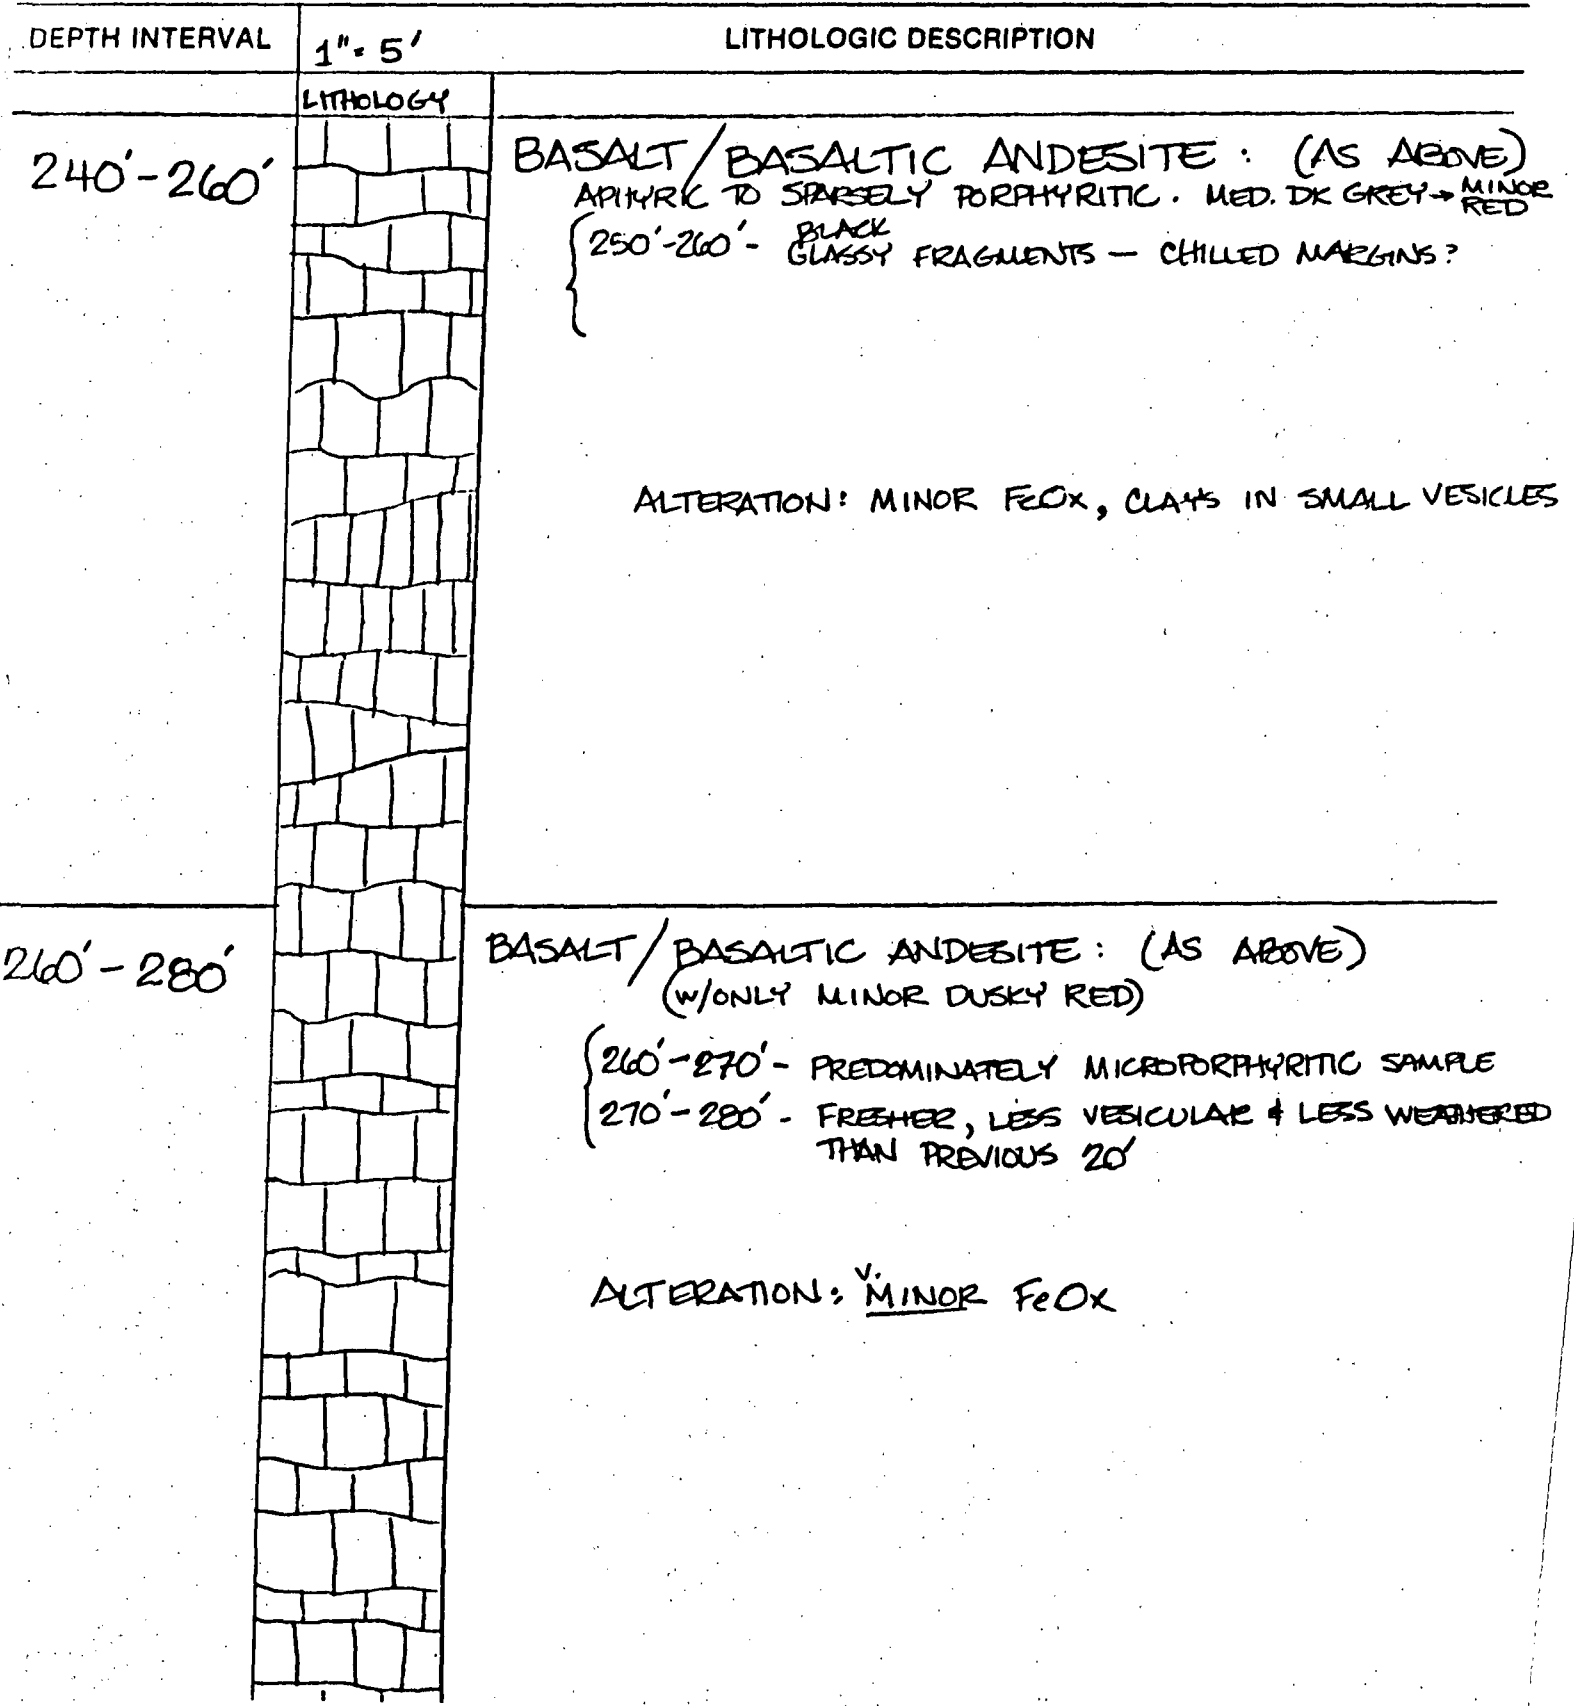 DEPTH INTERVAL
1" = 5'
LITHOLOGIC DESCRIPTION
LITHOLOGY
240'-260'
BASALT/BASALTIC ANDESITE: (AS ABOVE)
APHYRIC TO SPARSELY PORPHYRITIC. MED. DK GREY → MINOR RED
250'-260' - BLACK GLASSY FRAGMENTS — CHILLED MARGINS?
ALTERATION: MINOR FeOx, CLAYS IN SMALL VESICLES
260'-280'
BASALT/BASALTIC ANDESITE: (AS ABOVE)
(W/ONLY MINOR DUSKY RED)
260'-270' - PREDOMINATELY MICROPORPHYRITIC SAMPLE
270'-280' - FRESHER, LESS VESICULAR & LESS WEATHERED
THAN PREVIOUS 20'
ALTERATION: V. MINOR FeOx